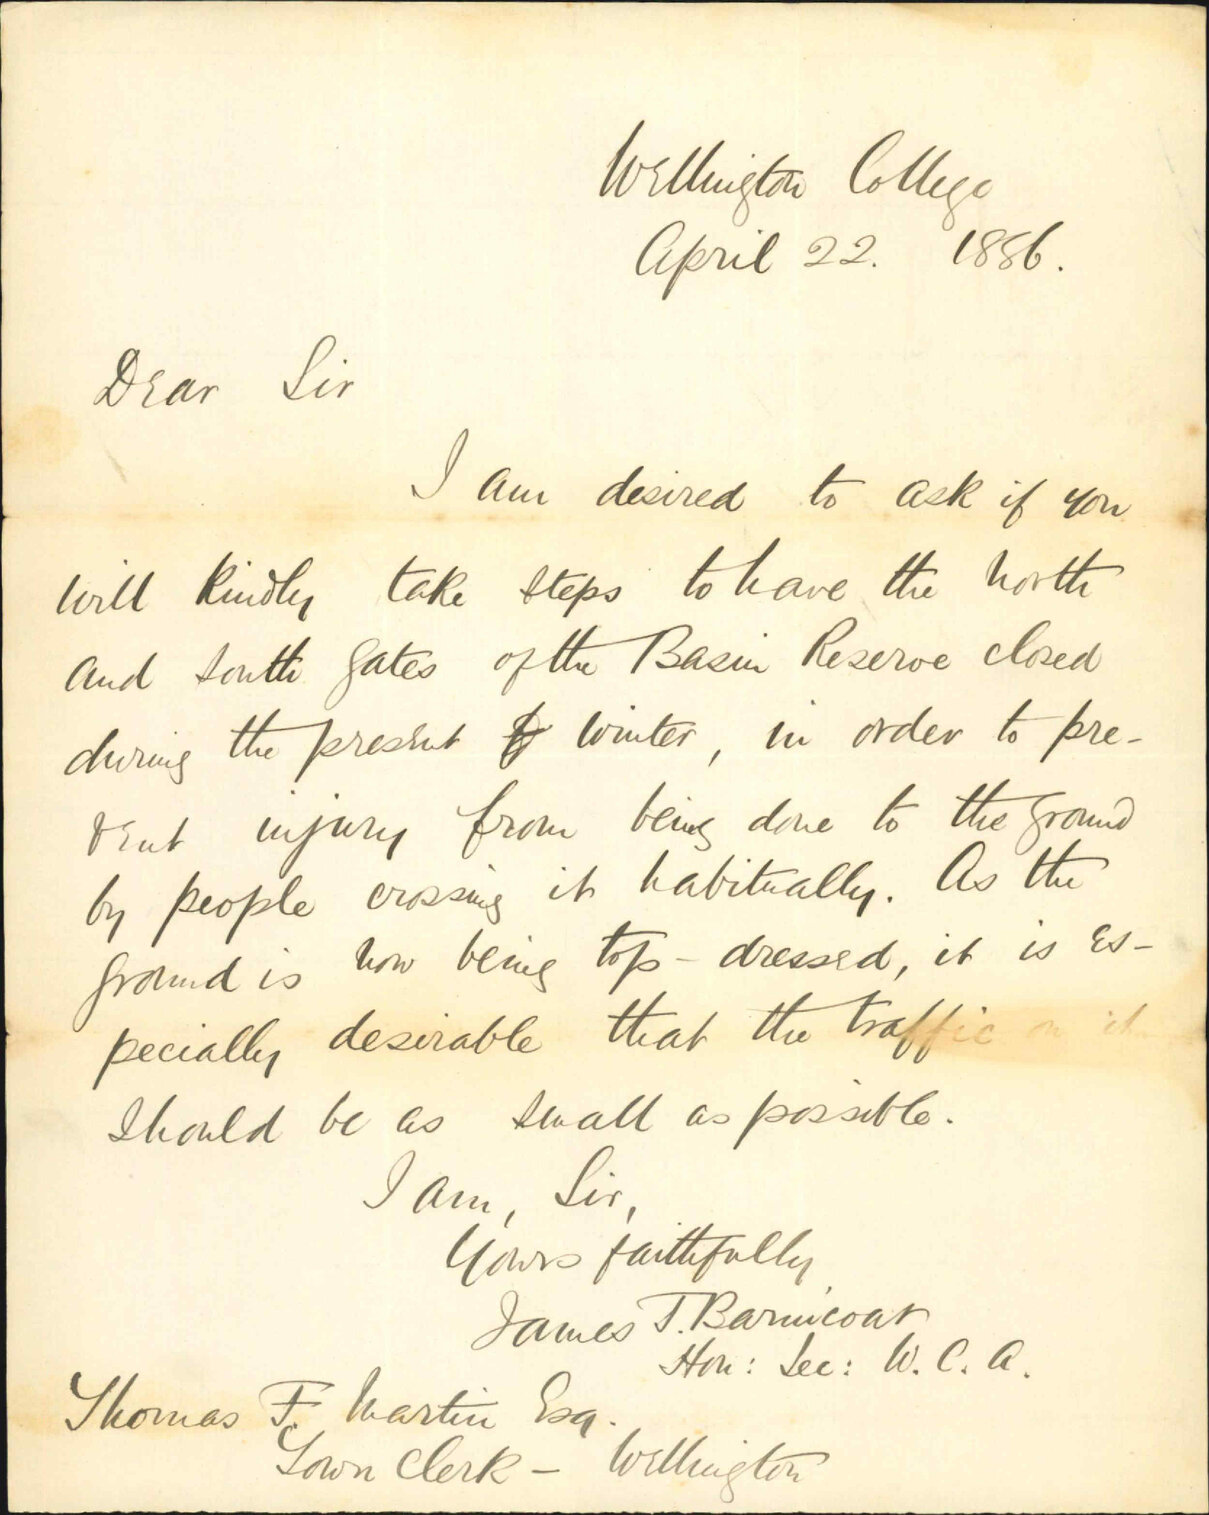 Wellington College
April 22. 1886.
Dear Sir
I am desired to ask if you
will kindly take steps to have the North
and South gates of the Basin Reserve closed
during the present winter, in order to pre-
vent injury from being done to the ground
by people crossing it habitually. As the
ground is now being top-dressed, it is es-
pecially desirable that the traffic on it
should be as small as possible.
I am, Sir,
Yours faithfully
James T. Barnicoat
Hon: Sec: W. C. A.
Thomas F. Martin Esq.
Town Clerk - Wellington